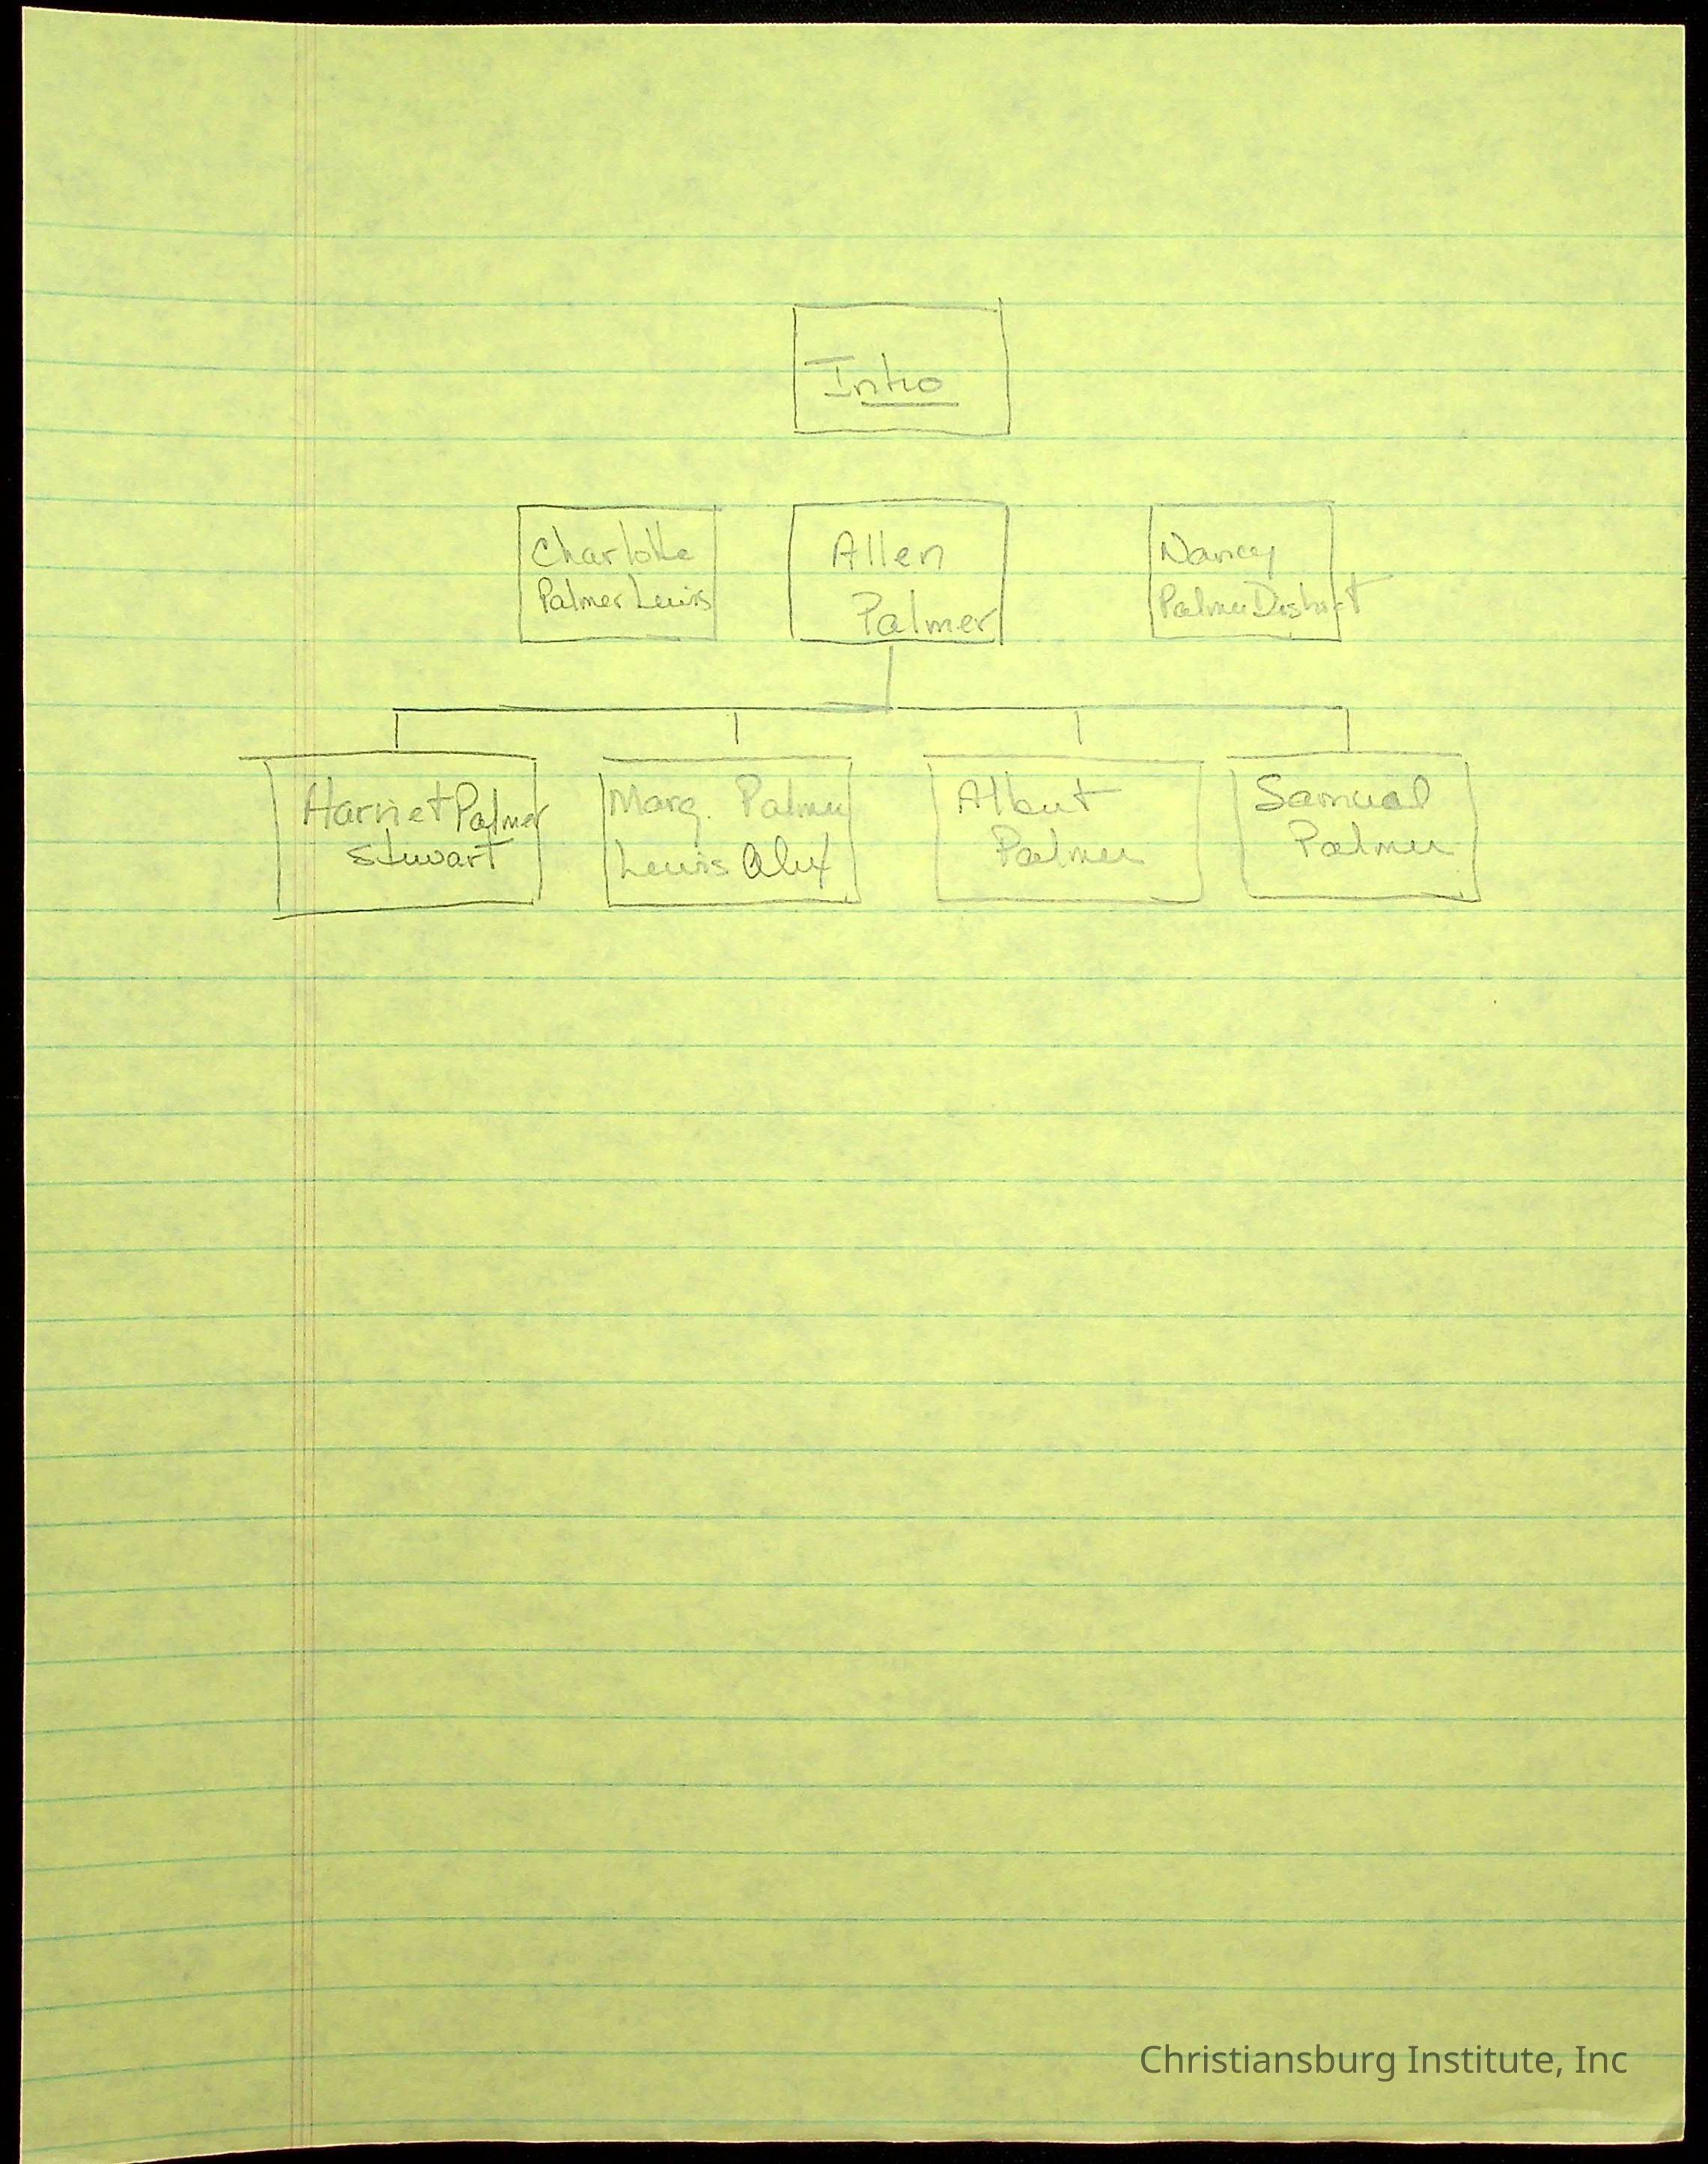 Intro
Charlotte
Palmer Lewis
Allen
Palmer
Nancy
Palmer
Harriet Palmer
Stewart
Marg. Palmer
Lewis Alex
Albert
Palmer
Samual
Palmer
Christiansburg Institute, Inc